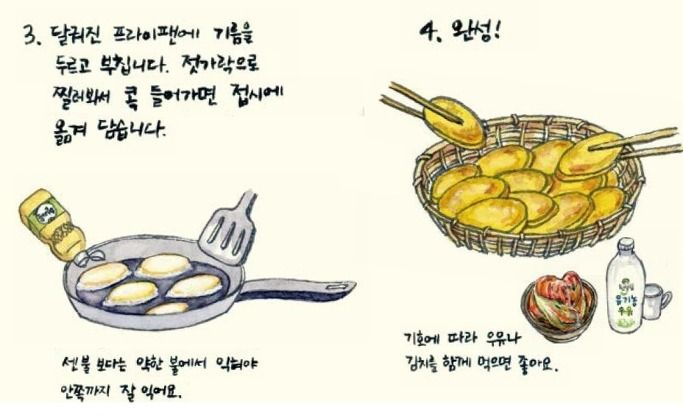 3. 달궈진 프라이팬에 기름을
두르고 부칩니다. 젓가락으로
찔러봐서 콕 들어가면 접시에
옮겨 담습니다.
센불 보다는 약한 불에서 익혀야
안쪽까지 잘 익어요.
4. 완성!
유기농
우유
기호에 따라 우유나
김치를 함께 먹으면 좋아요.